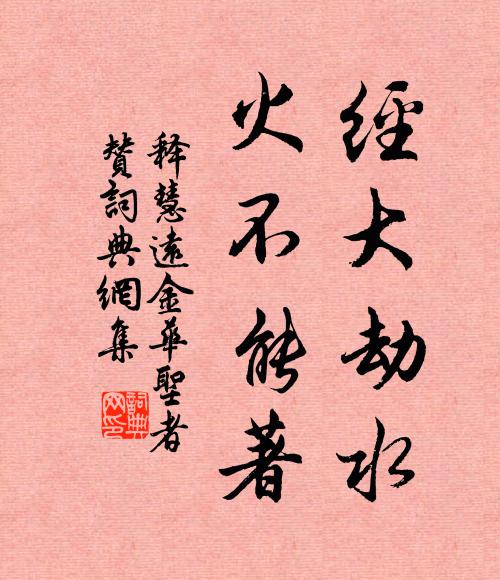 經大劫水
火不能著
释慧遠金華聖者
贊詞典網集
詞典
网印